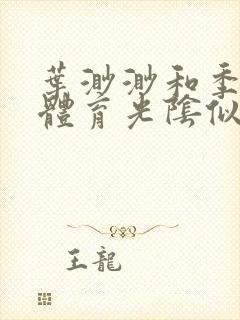 葉渺渺和季
體育老陰似
王龍